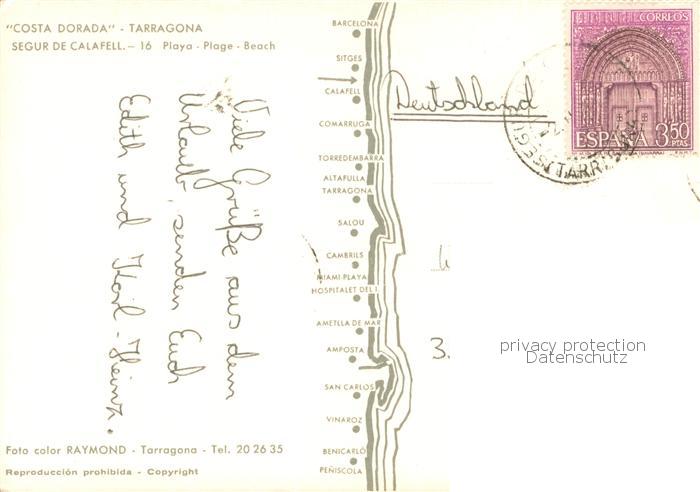 "COSTA DORADA" - TARRAGONA
SEGUR DE CALAFELL. - 16 Playa - Plage - Beach
Viele Grüße aus dem
Urlaub, senden Euch
Edith und Karl-Heinz.
Foto color RAYMOND - Tarragona - Tel. 20 26 35
Reproducción prohibida - Copyright
BARCELONA
SITGES
CALAFELL
COMARRUGA
TORREDEMBARRA
ALTAFULLA
TARRAGONA
SALOU
CAMBRILS
MIAMI-PLAYA
HOSPITALET DEL I.
AMETLLA DE MAR
AMPOSTA
SAN CARLOS
VINAROZ
BENICARLÓ
PEÑISCOLA
Deutschland
CORREOS
ESPAÑA 3,50
PTAS
3.
privacy protection
Datenschutz